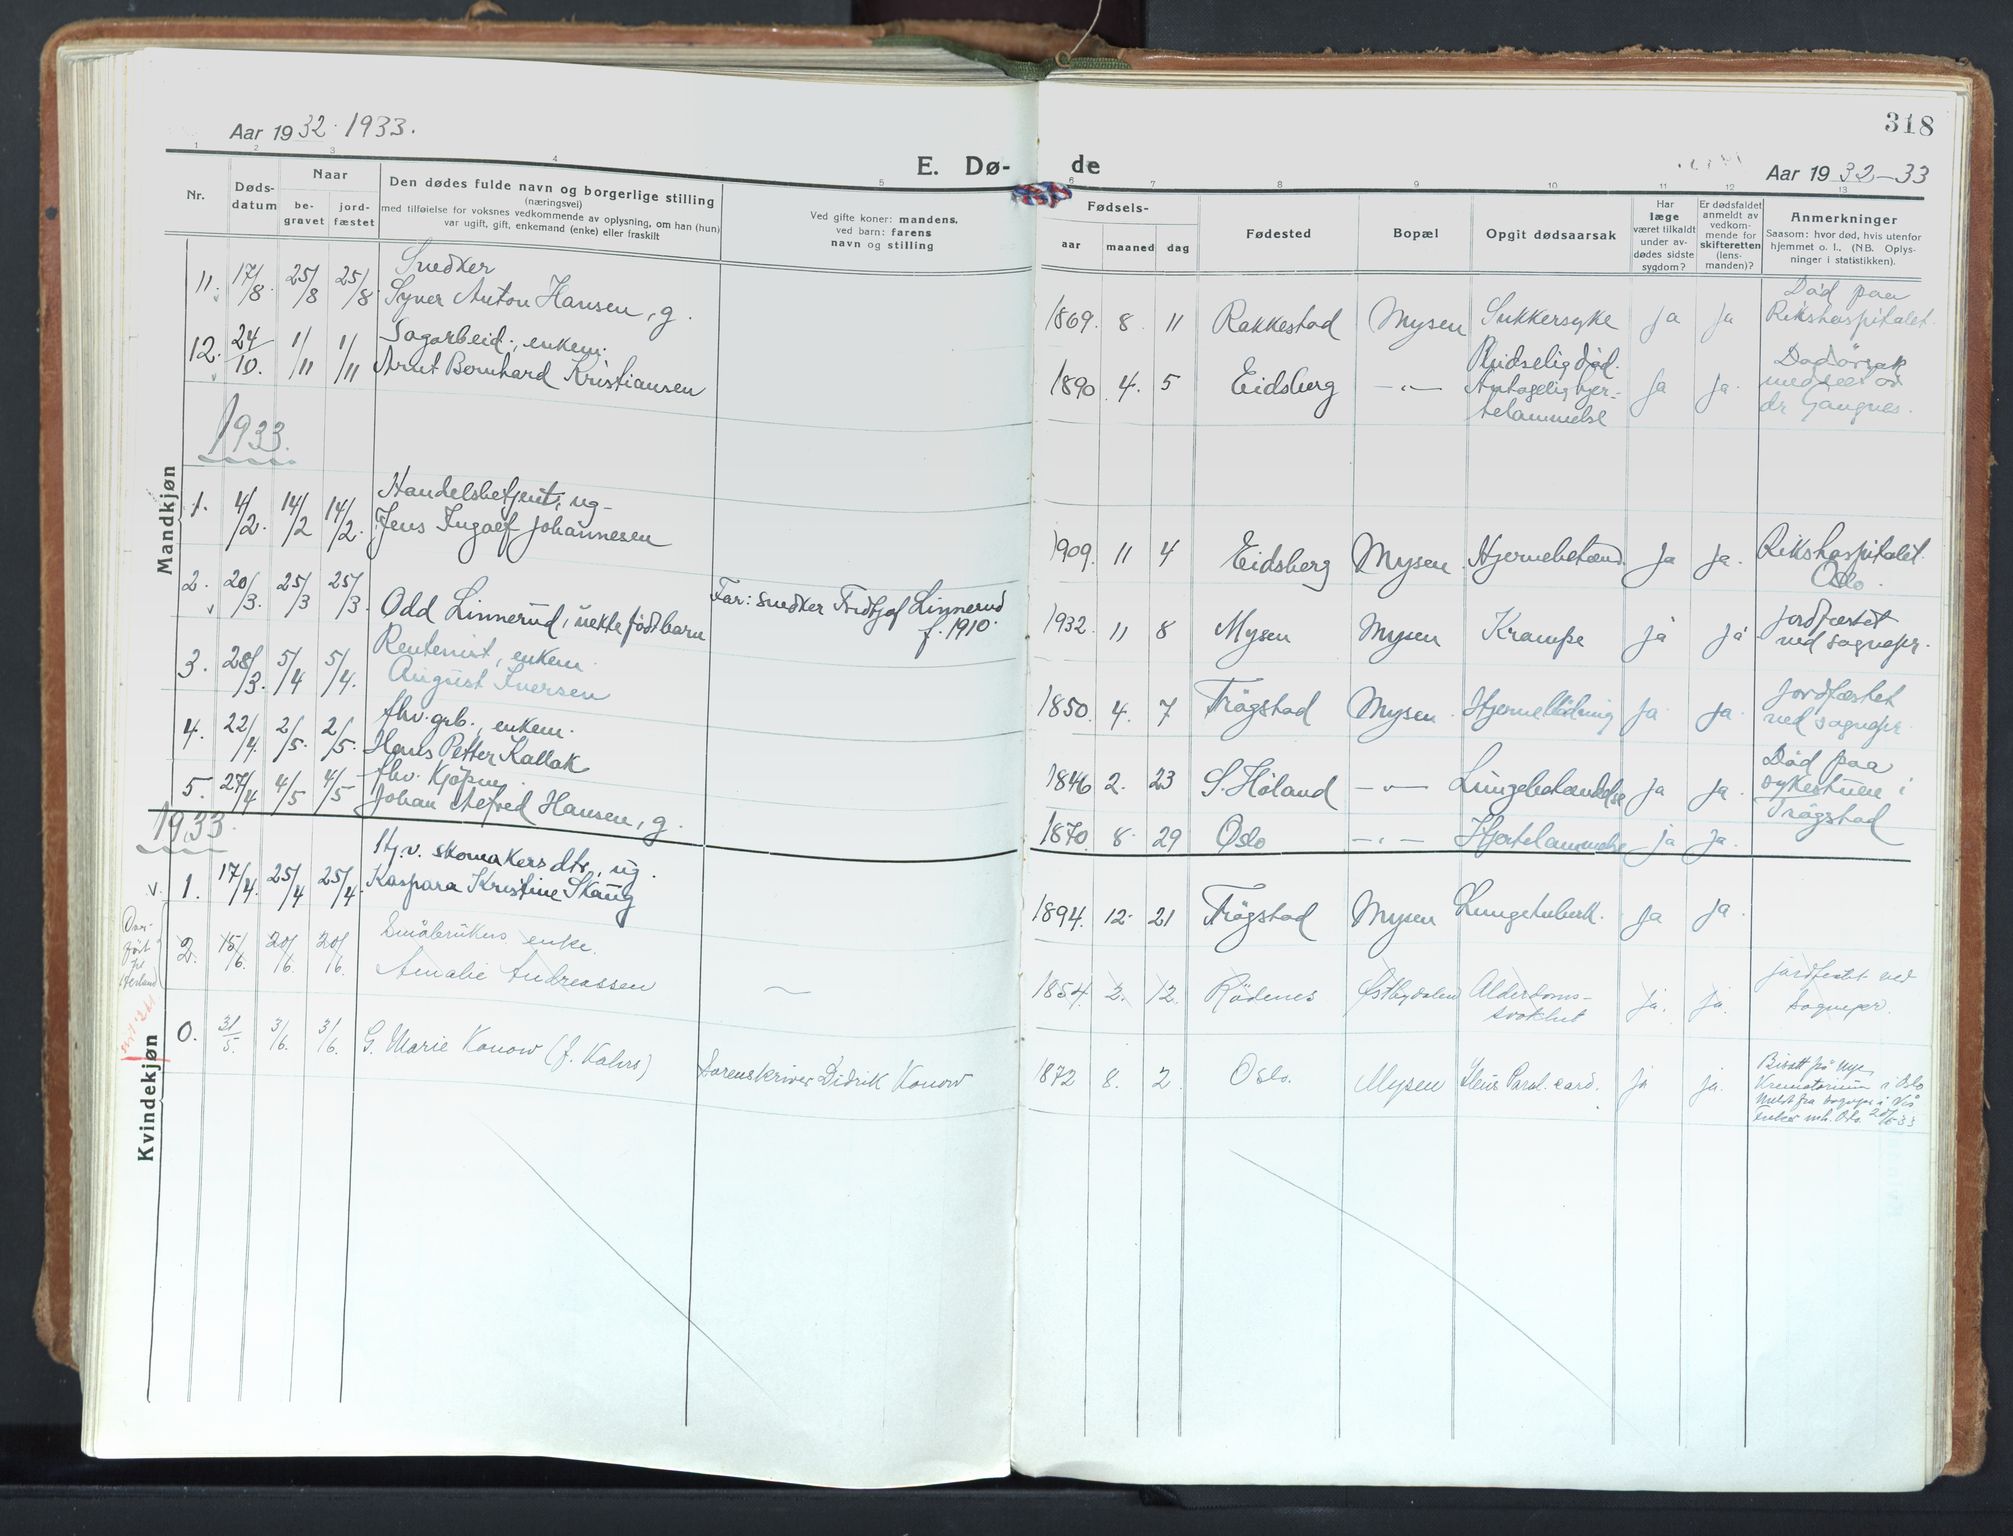 Aar 1932. 1933.
E. Dø-
1 2 3 4 5
Nr.
Døds-
datum
Naar
be-
gravet
jord-
fæstet
Den dødes fulde navn og borgerlige stilling
(næringsvei)
med tilføielse for voksnes vedkommende av oplysning, om han (hun)
var ugift, gift, enkemand (enke) eller fraskilt
Ved gifte koner: mandens,
ved barn: farens
navn og stilling
Mandkjøn
Snedker
11. 17/8. 25/8 25/8. Syver Anton Hansen, g.
Sagarbeid., enkem.
12. 24/10. 1/11 1/11 Arnt Bernhard Kristiansen
1933.
Handelsbetjent, ug-
1. 4/2. 14/2 14/2. Jens Ingolf Johannesen
2. 20/3. 25/3 25/3. Odd Linnerud, uekte født barn Far: snedker Fridtjof Linnerud
f. 1910.
Rentenist, enkem.
3. 28/3. 5/4 5/4. August Iversen
fhv. grb., enkem.
4. 22/4. 2/5. 2/5. Hans Petter Kallak
fhv. Kjøpm.
5. 27/4 4/5 4/5 Johan Alfred Hansen, g.
1933.
Kvindekjøn
Hj.v. skomakers dtr., ug.
v. 1. 17/4. 25/4 25/4. Kaspara Kristine Skaug
Over-
ført
Småbrukers enke.
2. 15/6. 20/6. 20/6. Amalie Andreassen
0. 31/5. 3/6. 3/6. G. Marie Konow (f. Kahrs) Sorenskriver Didrik Konow
318
de
Aar 1932-33
6 7 8 9 10 11 12 13
Fødsels-
aar maaned dag
Fødested
Bopæl
Opgit dødsaarsak
Har
læge
været tilkaldt
under av-
dødes sidste
sygdom?
Er dødsfaldet
anmeldt av
vedkom-
mende for
skifteretten
(lens-
manden)?
Anmerkninger
Saasom: hvor død, hvis utenfor
hjemmet o. l., (NB. Oplys-
ninger i statistikken).
1869. 8. 11 Rakkestad Mysen Sukkersyke ja ja Død paa
Rikshospitalet.
1890 4. 5 Eidsberg -"- Pludselig død.
Antagelig hjer-
telammelse ja ja. Dødsårsak
meddelt av
dr Gangnes.
1909. 11 4 Eidsberg Mysen Hjernebetænd. ja ja. Rikshospitalet.
Oslo.
1932. 11 8 Mysen Mysen Krampe ja ja jordfæstet
ved sognepr.
1850. 4. 7 Trøgstad Mysen. Hjerneblödning ja ja. Jordfæstet
ved sognepr.
1846 2. 23 S. Høland -"- Lungebetændelse ja ja. Død paa
sykestuen i
Trøgstad
1870. 8. 29 Oslo -"- Hjertelammelse ja ja.
1894. 12. 21 Trøgstad Mysen Lungetuberk. ja ja.
1854. 2. 12. Rödenes Østbydalen Alderdoms-
svakhet ja. ja. jordfestet ved
sognepr.
1872 8. 2 Oslo. Mysen Ileus Paral. card. ja ja. Bisatt på nye
Krematorium i Oslo